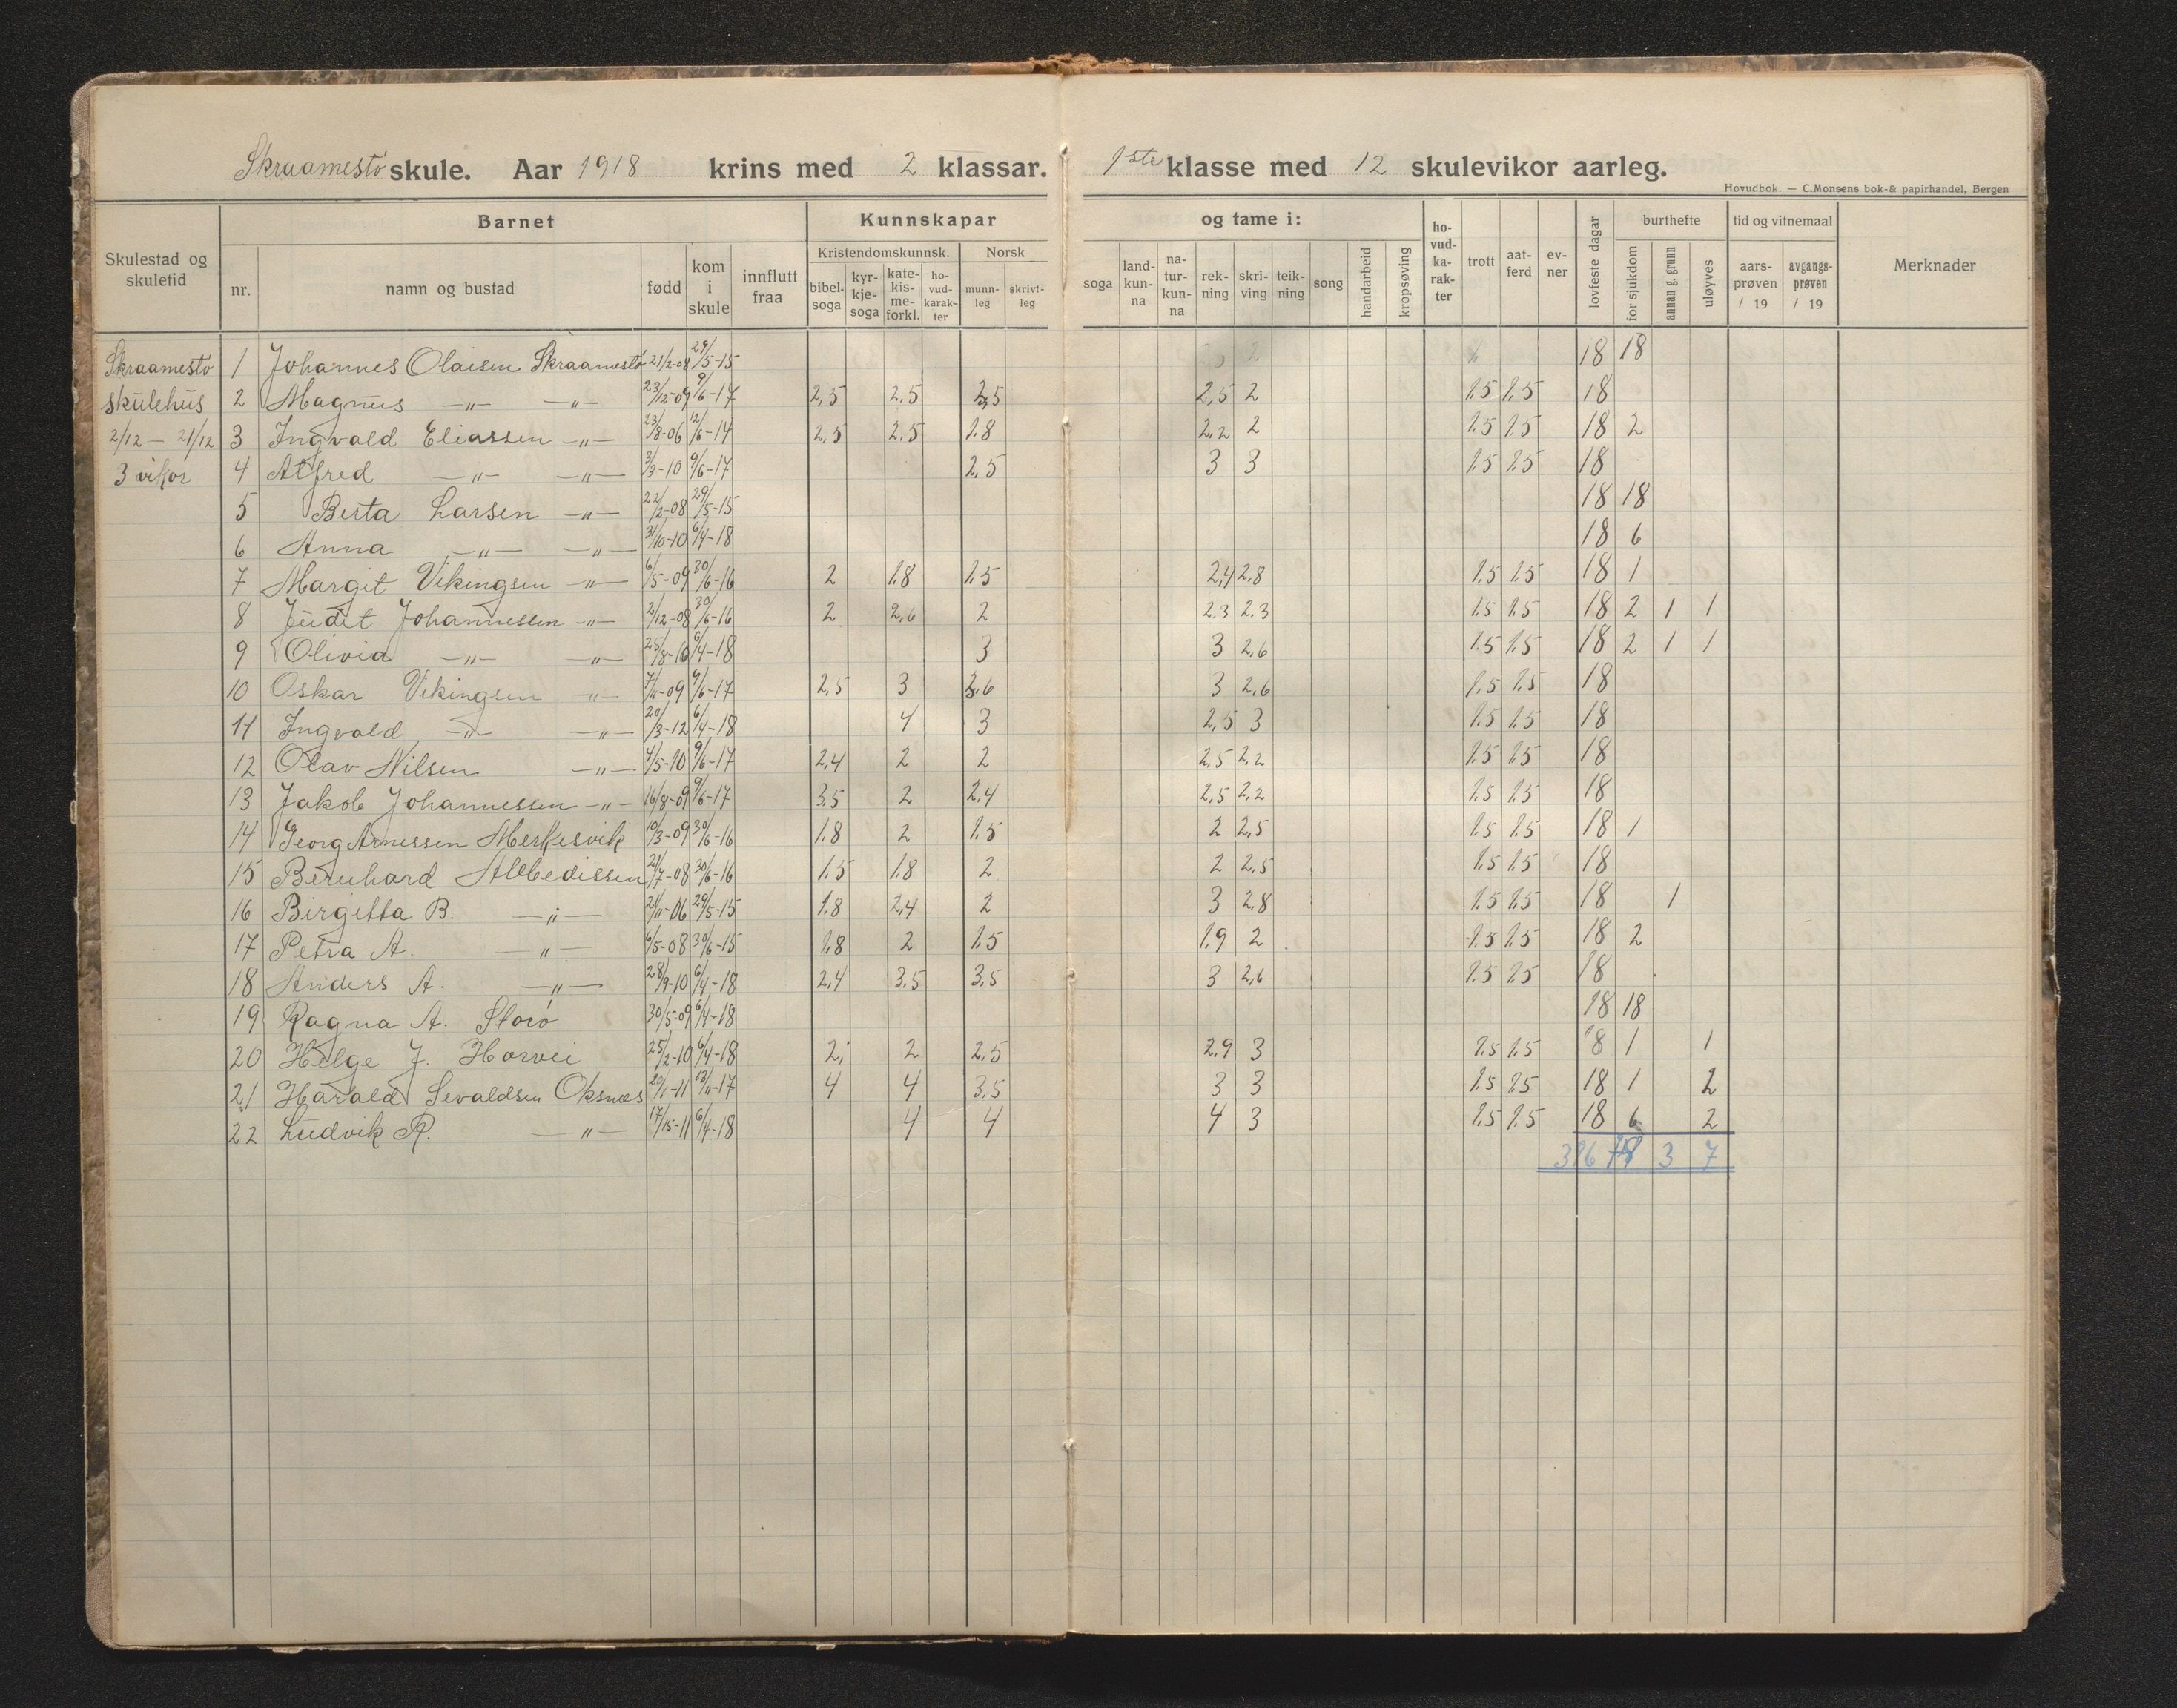 Skraamestö skule. Aar 1918 krins med 2 klassar. 1ste klasse med 12 skulevikor aarleg.
Hovudbok. — C. Monsens bok- & papirhandel, Bergen
Skulestad og skuletid | Barnet | Kunnskapar og tame i: | ho-vud-ka-rak-ter | trott | aat-ferd | ev-ner | lovfeste dagar | burthefte | tid og vitnemaal | Merknader
nr. | namn og bustad | fødd | kom i skule | innflutt fraa | Kristendomskunnsk. | Norsk | soga | land-kun-na | na-tur-kun-na | rek-ning | skri-ving | teik-ning | song | handarbeid | kropsøving | for sjukdom | annan g. grunn | uløyves | aars-prøven / 19 | avgangs-prøven / 19
bibel-soga | kyr-kje-soga | kate-kis-me-forkl. | ho-vud-karak-ter | munn-leg | skrivt-leg
Skraamestö 1 Johannes Olaisen Skraamestö 21/2-08 29/5-15 18 18
skulehus 2 Magnus —„— —„— 23/12-09 9/6-17 2,5 2.5 2,5 2,5 2 1.5 1.5 18
2/12 — 21/12 3 Ingvald Eliassen —„— 23/8-06 12/6-14 2,5 2.5 1.8 2,2 2 1.5 1.5 18 2
3 vikor 4 Alfred —„— —„— 3/3-10 9/6-17 2,5 3 3 1.5 1.5 18
5 Berta Larsen —„— 22/2-08 29/5-15 18 18
6 Anna —„— —„— 31/10-10 6/4-18 18 6
7 Margit Vikingsen —„— 6/5-09 30/6-16 2 1.8 1.5 2,4 2.8 1.5 1.5 18 1
8 Judit Johannessen —„— 2/12-08 30/6-16 2 2,6 2 2.3 2.3 1.5 1.5 18 2 1 1
9 Olivia —„— —„— 25/8-10 6/4-18 3 3 2,6 1.5 1.5 18 2 1 1
10 Oskar Vikingsen —„— 7/11-09 9/6-17 2,5 3 2,6 3 2,6 1.5 1.5 18
11 Ingvald —„— —„— 20/3-12 6/4-18 4 3 2,5 3 1.5 1.5 18
12 Olav Nilsen —„— 4/5-10 9/6-17 2,4 2 2 2,5 2,2 1.5 1.5 18
13 Jakob Johannessen —„— 16/8-09 9/6-17 3,5 2 2,4 2,5 2,2 1.5 1.5 18
14 Georg Arnessen Merkesvik 10/3-09 30/6-16 1.8 2 1.5 2 2,5 1.5 1.5 18 1
15 Bernhard Albedissen 21/7-08 30/6-16 1.5 1.8 2 2 2,5 1.5 1.5 18
16 Birgitta B. —„— 21/11-06 29/5-15 1.8 2,4 2 3 2.8 1.5 1.5 18 1
17 Petra A. —„— 6/5-08 30/6-15 1.8 2 1.5 1.9 2 1.5 1.5 18 2
18 Anders A. —„— 28/9-10 6/4-18 2,4 3.5 3,5 3 2,6 1.5 1.5 18
19 Ragna A. Storö 30/5-09 6/4-18 18 18
20 Helge J. Horvei 25/2-10 6/4-18 2, 2 2.5 2.9 3 1.5 1.5 18 1 1
21 Harald Sevaldsen Oksnes 13/11-17 4 4 3,5 3 3 1.5 1.5 18 1 2
22 Ludvik R. —„— 6/4-18 4 4 4 3 1.5 1.5 18 6 2
396 78 3 7